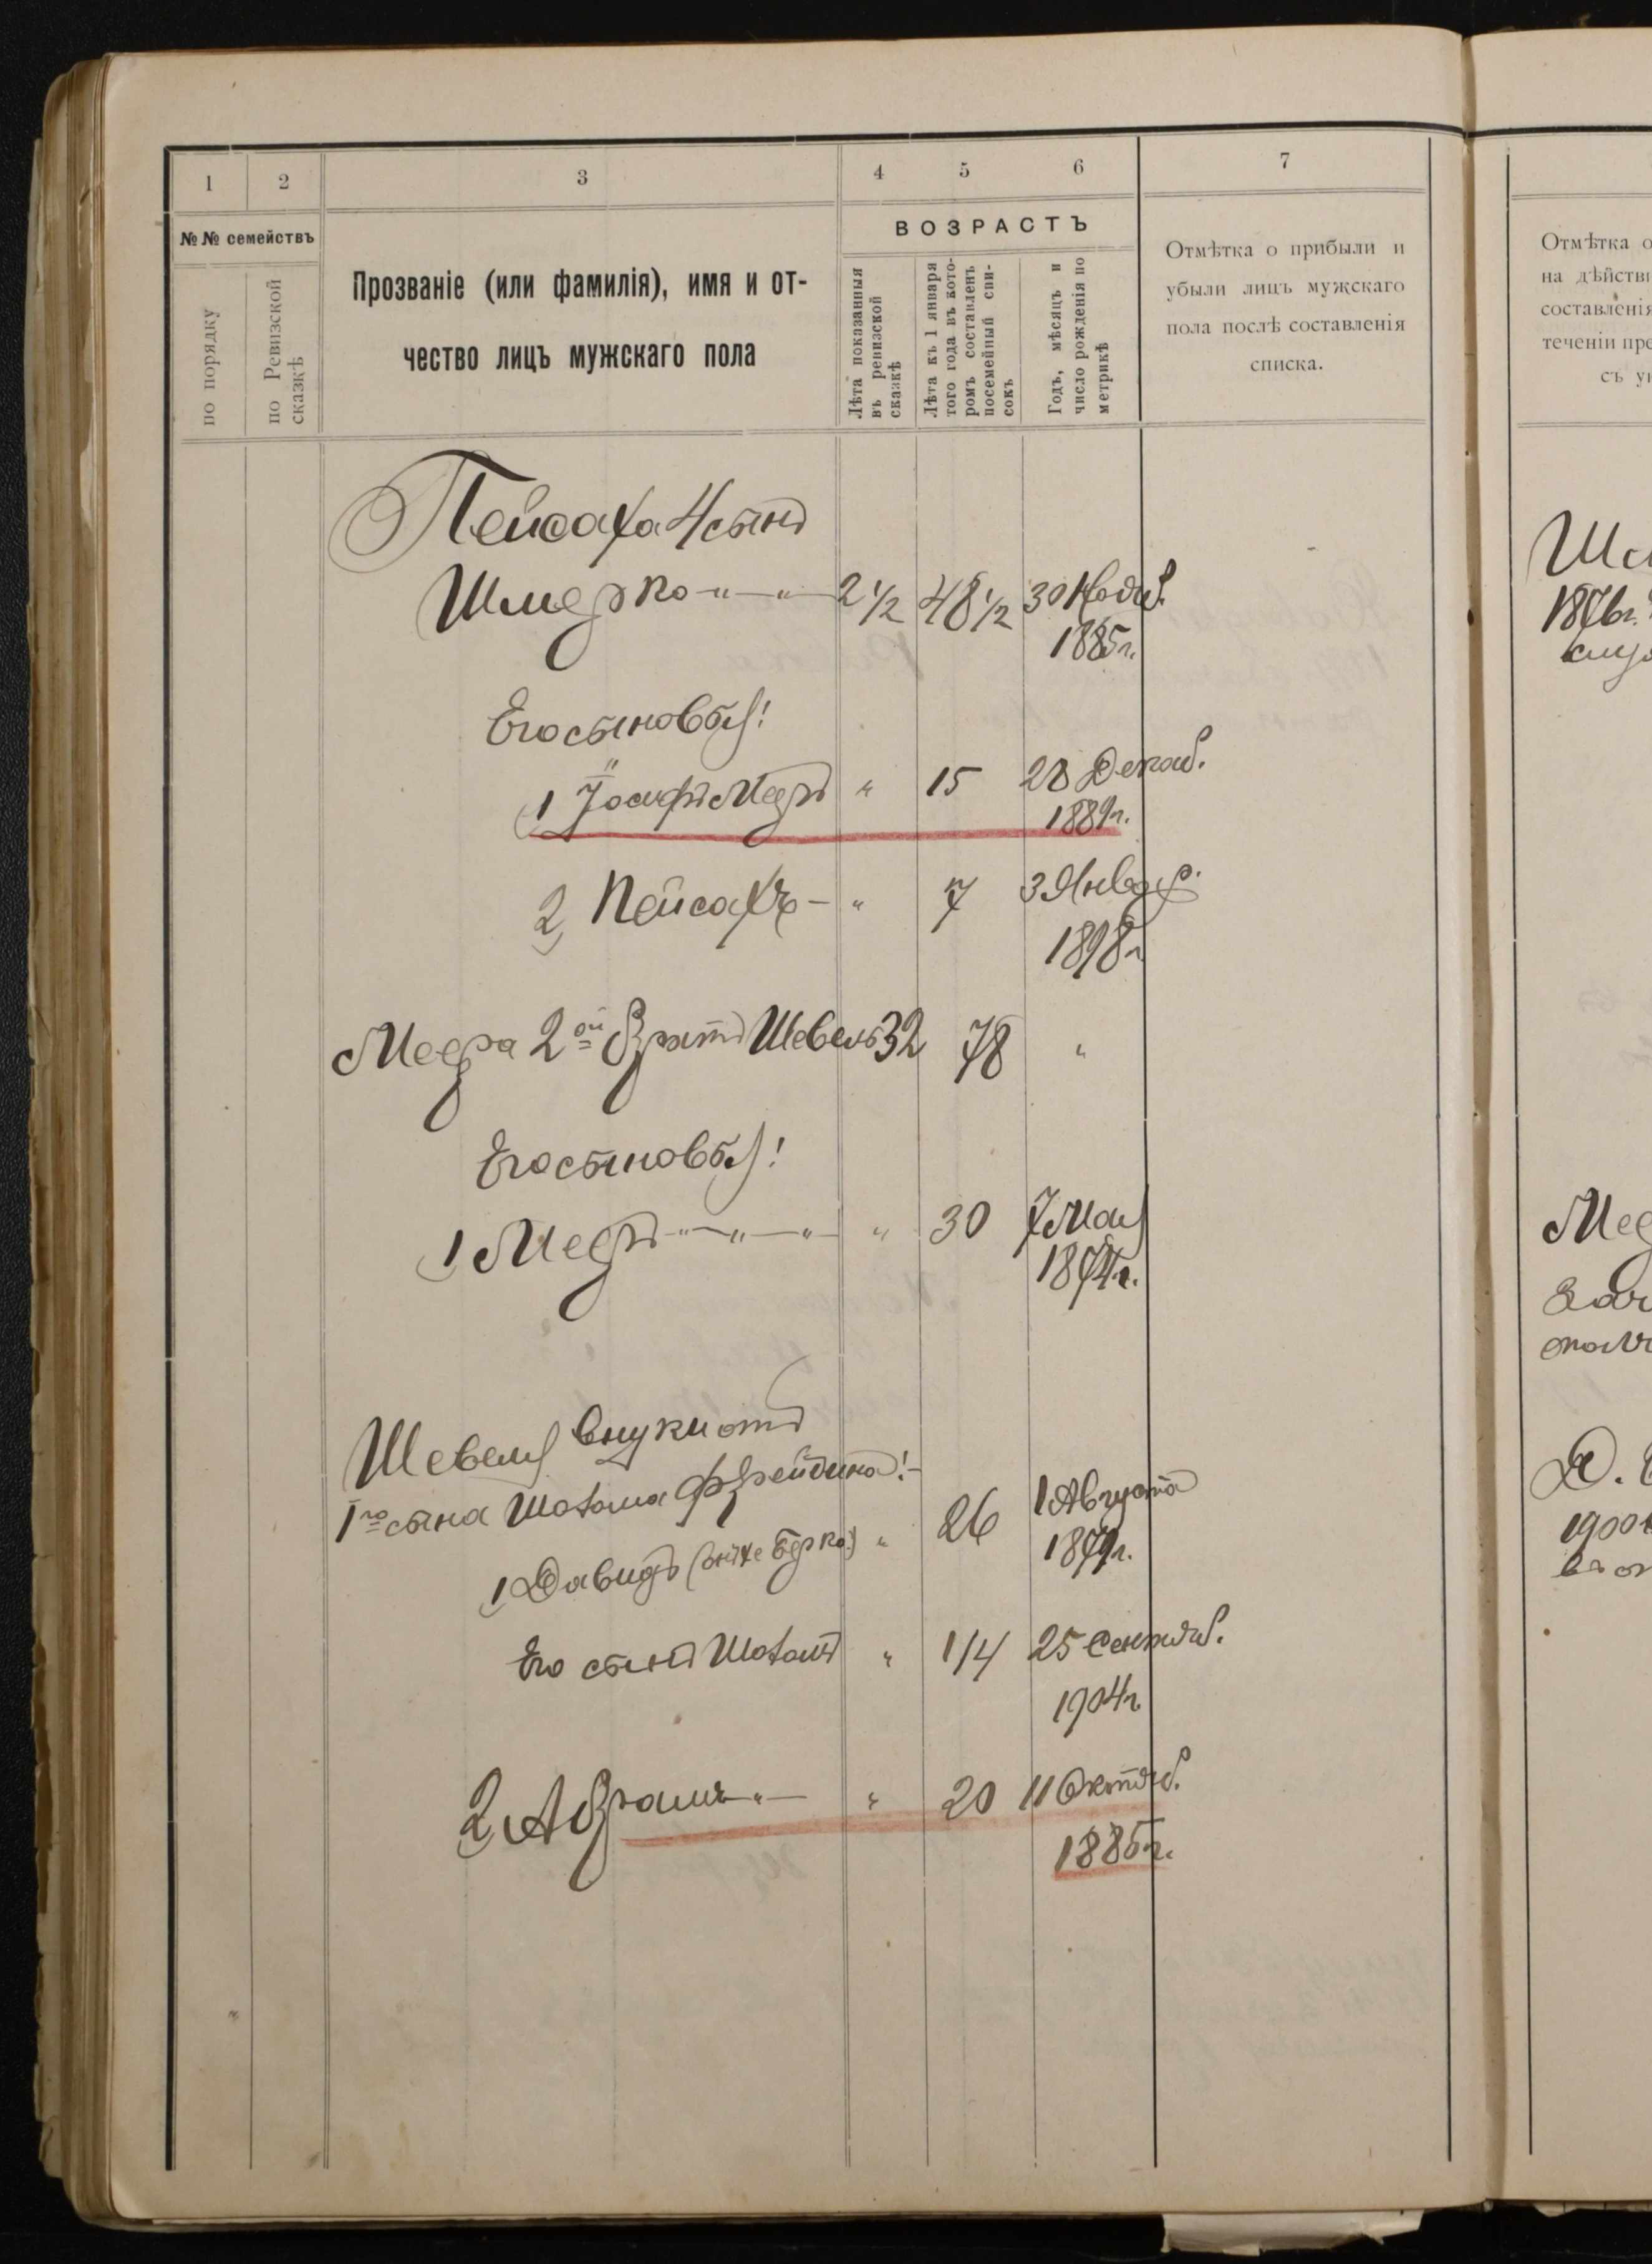 1
2
3
4
5
6
7
№№ семействъ
по порядку
по Ревизской
сказкѣ
Прозваніе (или фамилія), имя и от-
чество лицъ мужскаго пола
ВОЗРАСТЪ
Лѣта показанныя
въ ревизской
сказкѣ
Лѣта къ 1 января
того года въ кото-
ромъ составленъ
посемейный спи-
сокъ
Годъ, мѣсяцъ и
число рожденія по
метрикѣ
Отмѣтка о прибыли и
убыли лицъ мужскаго
пола послѣ составленія
списка.
Пейсаха 4 сынъ
Шмерко 2½ 48½ 30 Нояб.
1885 г.
Его сыновья:
1) Іосифъ Меръ " 15 28 Декаб.
1889 г.
2) Пейсахъ " 7 3 Январ.
1898 г.
Меера 2ой братъ Шевель 32 78 "
Его сыновья:
1) Мееръ " 30 7 Мая
1874 г.
Шевеля внуки отъ
1го сына Шотома Фрейдина:
1) Давидъ (онъ же Берко) " 26 1 Августа
1879 г.
Его сынъ Шотомъ " 1/4 25 Сентяб.
1904 г.
2) Абрамъ " 20 11 Октяб.
1885 г.
Отмѣтка о
на дѣйстви
составленія
теченіи пре
съ ук
1876 г.
Мее
1900